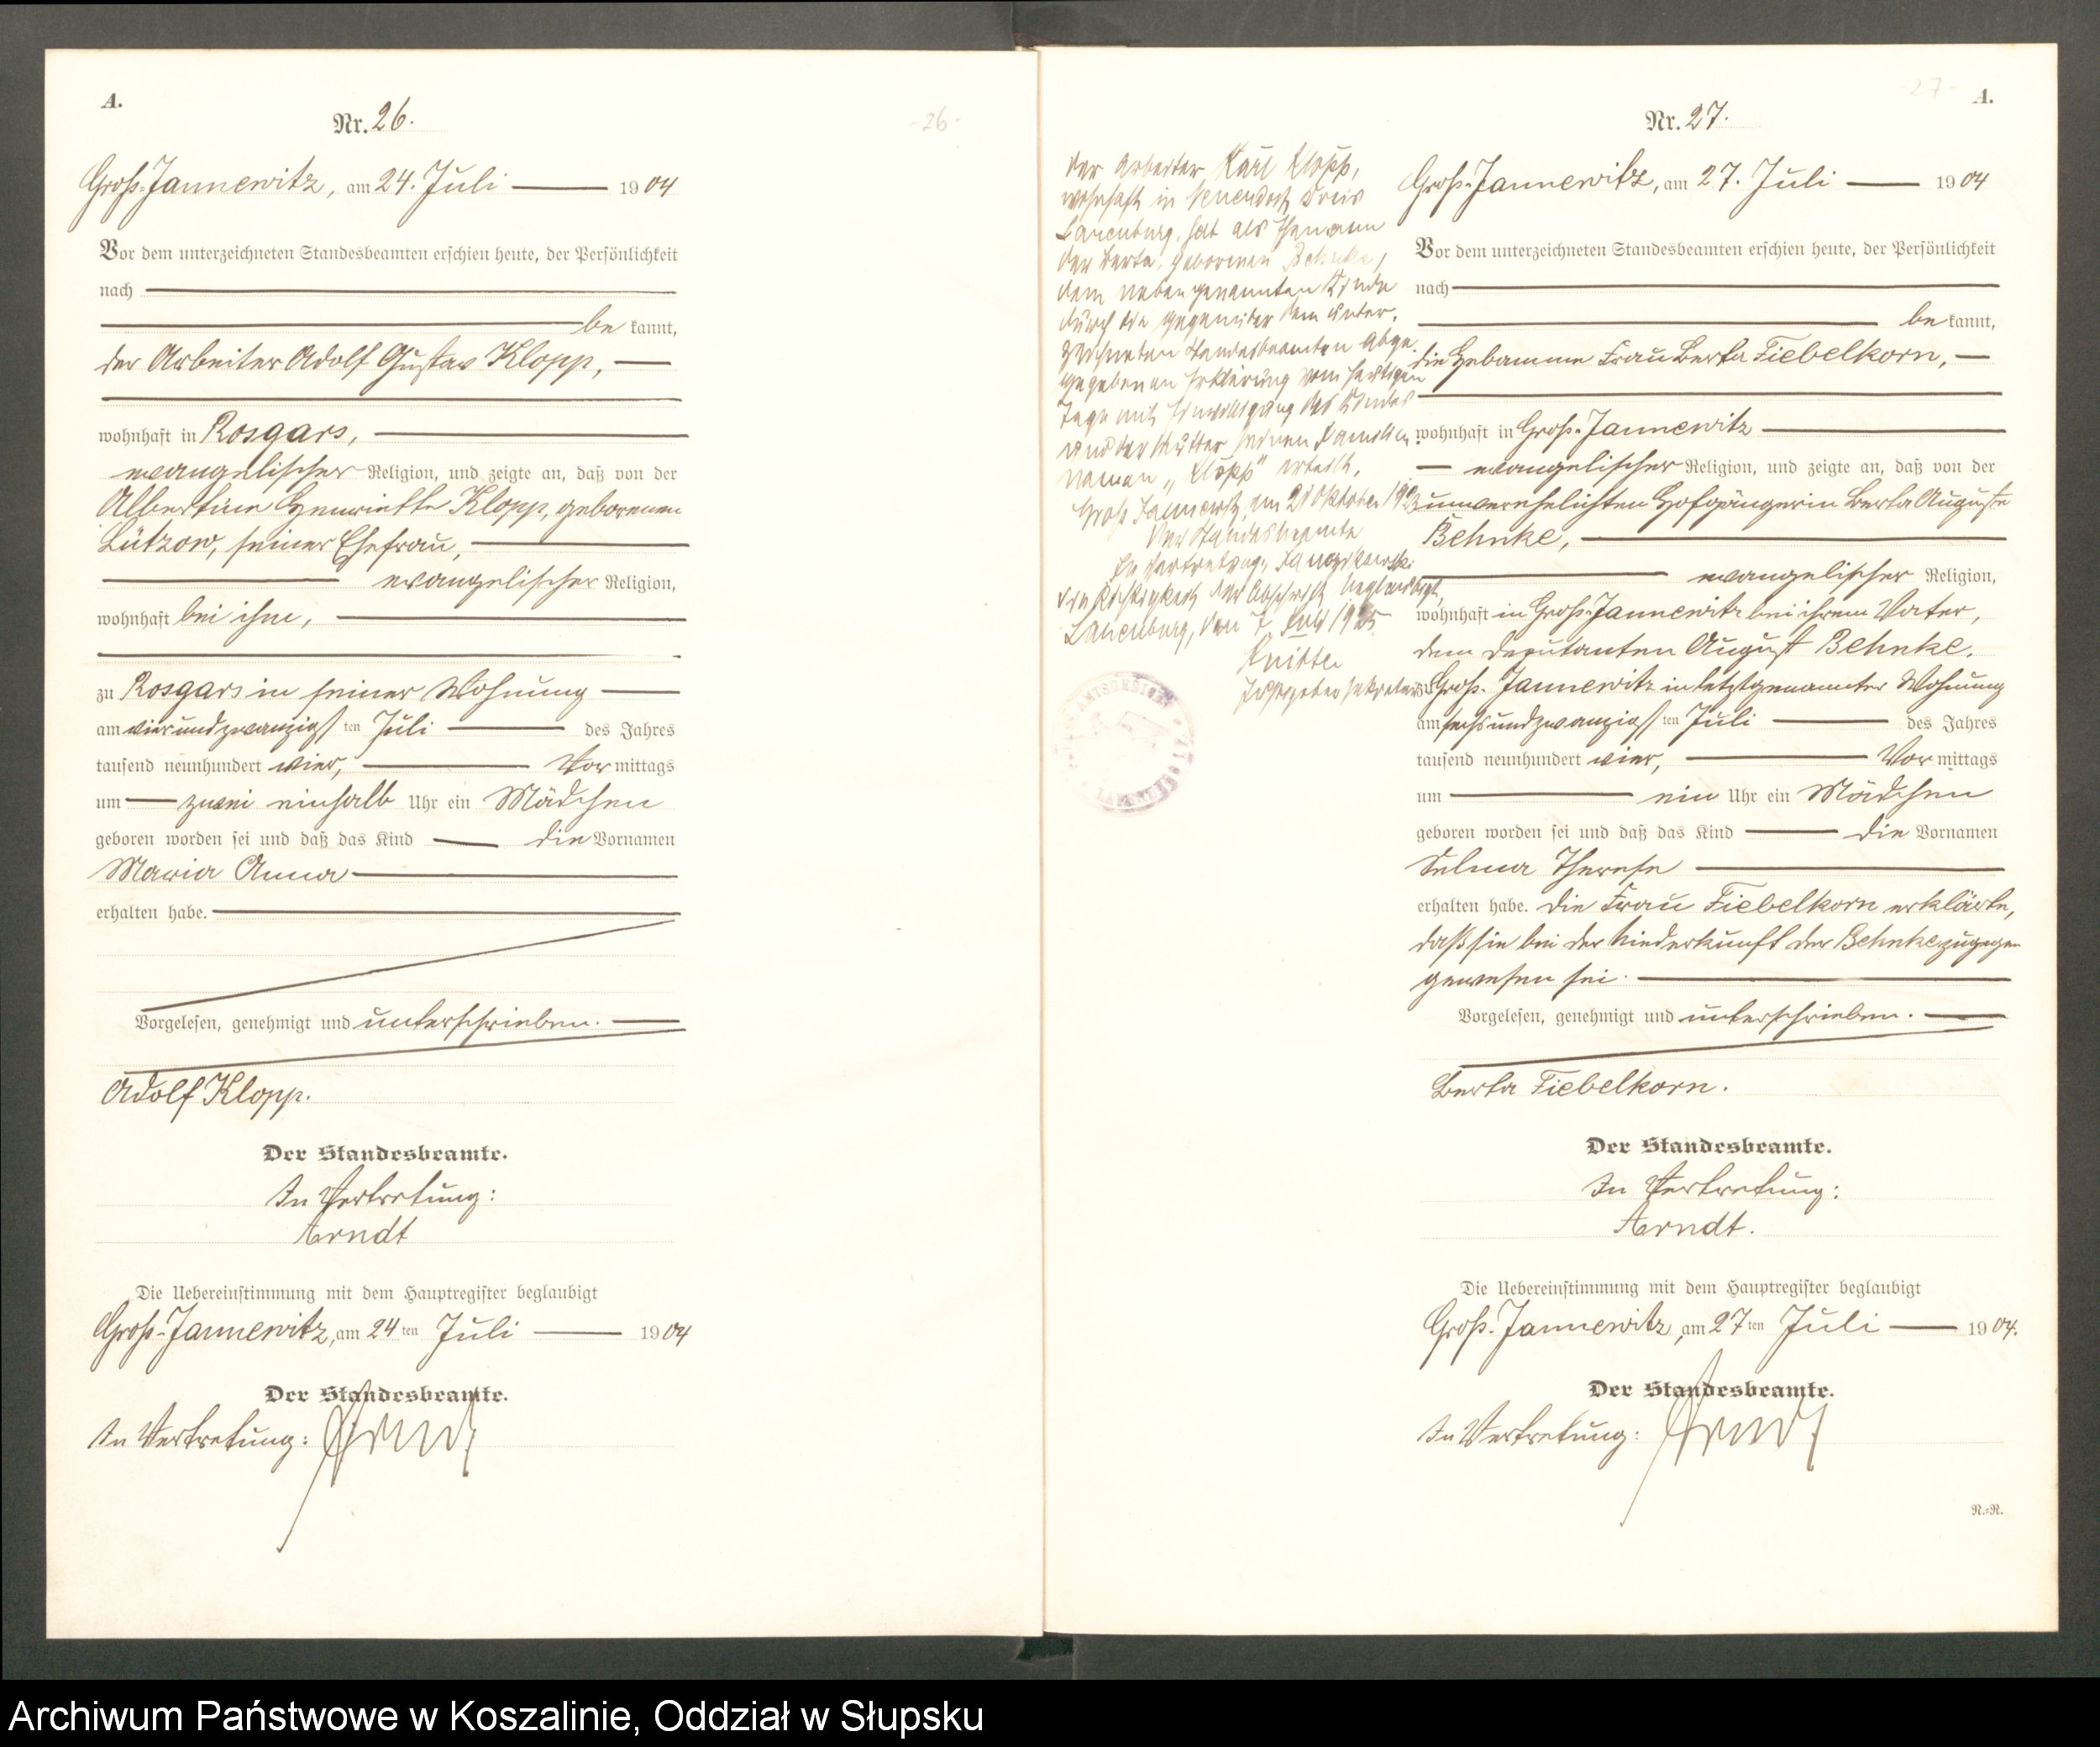 A.
Nr. 26.
- 26 -
Groß-Jannewitz, am 24. Juli 1904
Vor dem unterzeichneten Standesbeamten erschien heute, der Persönlichkeit
nach
be kannt,
der Arbeiter Adolf Gustav Klopp,
wohnhaft in Rosgars,
evangelischer Religion, und zeigte an, daß von der
Albertine Henriette Klopp, geborenen
Lützow, seiner Ehefrau,
evangelischer Religion,
wohnhaft bei ihm,
zu Rosgars in seiner Wohnung
am vierundzwanzigsten Juli des Jahres
tausend neunhundert vier, Vormittags
um zwei einhalb Uhr ein Mädchen
geboren worden sei und daß das Kind die Vornamen
Maria Anna
erhalten habe.
Vorgelesen, genehmigt und unterschrieben.
Adolf Klopp.
Der Standesbeamte.
In Vertretung:
Arndt
Die Uebereinstimmung mit dem Hauptregister beglaubigt
Groß-Jannewitz, am 24ten Juli 1904
Der Standesbeamte.
In Vertretung: Arndt
Der Arbeiter Karl Klopp,
wohnhaft in Kreis
Lauenburg, hat als Ehemann
der Berta, geborenen Behnke,
dem nebengenannten Kinde
durch die gegenüber dem unter-
zeichneten Standesbeamten abge-
gegebenen Erklärung vom heutigen
Tage mit Einwilligung des Kindes
und der Mutter seinen Familien-
namen „Klopp" erteilt.
Groß Jannewitz, am Oktober
Der Standesbeamte
In Vertretung:
Die Richtigkeit der Abschrift beglaubigt,
Lauenburg, den 7. Juli 1925
Justizobersekretär
27 -
A.
Nr. 27.
Groß-Jannewitz, am 27. Juli 1904
Vor dem unterzeichneten Standesbeamten erschien heute, der Persönlichkeit
nach
be kannt,
die Hebamme Frau Berta Fiebelkorn,
wohnhaft in Groß-Jannewitz
evangelischer Religion, und zeigte an, daß von der
unverehelichten Hofgängerin Berta Auguste
Behnke,
evangelischer Religion,
wohnhaft in Groß-Jannewitz bei ihrem Vater,
dem Deputanten August Behnke,
zu Groß-Jannewitz in letztgenannter Wohnung
am sechsundzwanzigsten Juli des Jahres
tausend neunhundert vier, Vormittags
um ein Uhr ein Mädchen
geboren worden sei und daß das Kind die Vornamen
Selma Therese
erhalten habe. Die Frau Fiebelkorn erklärte,
daß sie bei der Niederkunft der Behnke zugegen
gewesen sei.
Vorgelesen, genehmigt und unterschrieben.
Berta Fiebelkorn.
Der Standesbeamte.
In Vertretung:
Arndt.
Die Uebereinstimmung mit dem Hauptregister beglaubigt
Groß-Jannewitz, am 27ten Juli 1904.
Der Standesbeamte.
In Vertretung: Arndt
R.-R.
Archiwum Państwowe w Koszalinie, Oddział w Słupsku